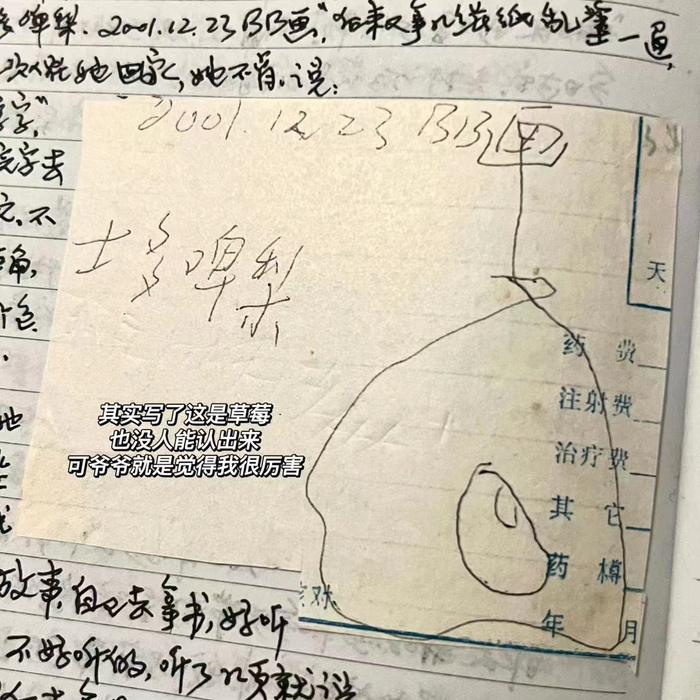 啤梨. 2001.12.23 BB画, 后来又拿几张纸乱画一通,
她不肯, 说:
字"
字去
不
2001.12.23 BB画
士多啤梨
天
药 费
注射费
治疗费
其 它
药 樽
对
年 月
其实写了这是草莓
也没人能认出来
可爷爷就是觉得我很厉害
色
她
故事, 自己去拿书, 好听
不好听的, 听了几页就说